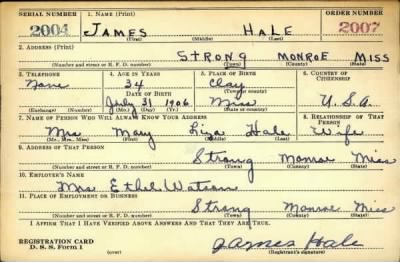 SERIAL NUMBER 1. NAME (Print) ORDER NUMBER
2004 JAMES HALE 2007
(First) (Middle) (Last)
2. ADDRESS (Print)
STRONG MONROE MISS
(Number and street or R. F. D. number) (Town) (County) (State)
3. TELEPHONE 4. AGE IN YEARS 5. PLACE OF BIRTH 6. COUNTRY OF CITIZENSHIP
None 34 Clay
DATE OF BIRTH (Town or county)
July 31 1906 Miss U.S.A.
(Exchange) (Number) (Mo.) (Day) (Yr.) (State or country)
7. NAME OF PERSON WHO WILL ALWAYS KNOW YOUR ADDRESS 8. RELATIONSHIP OF THAT PERSON
Mrs May Liza Hale Wife
(Mr., Mrs., Miss) (First) (Middle) (Last)
9. ADDRESS OF THAT PERSON
Strong Monroe Miss
(Number and street or R. F. D. number) (Town) (County) (State)
10. EMPLOYER'S NAME
Mrs. Ethel Watson
11. PLACE OF EMPLOYMENT OR BUSINESS
Strong Monroe Miss
(Number and street or R. F. D. number) (Town) (County) (State)
I AFFIRM THAT I HAVE VERIFIED ABOVE ANSWERS AND THAT THEY ARE TRUE.
REGISTRATION CARD
D. S. S. Form 1 (over) James Hale
(Registrant's signature)